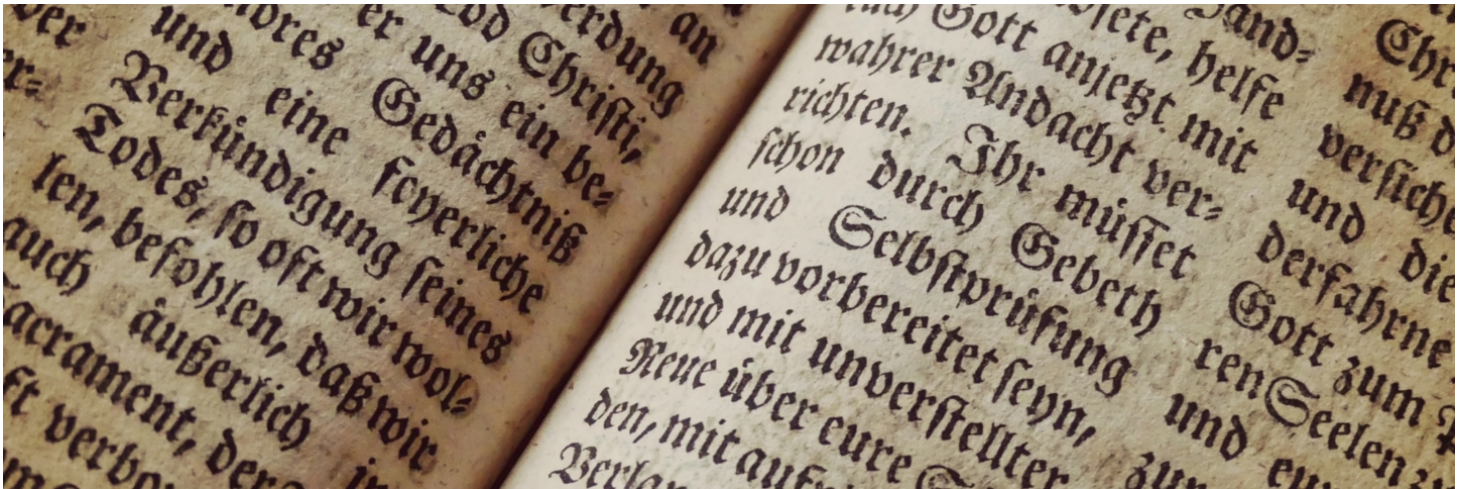 der
er-
an
Tod Christi,
er uns ein be-
Gedächtniß
und eine feyerliche
Verkündigung seines
Todes, so oft wir wol-
len, befohlen, daß wir
auch äußerlich
der
verbor
helfe
Gott anjetzt mit
wahrer Andacht ver-
richten. Ihr müsset
schon durch Gebeth
und Selbstprüfung
dazu vorbereitet seyn,
und mit unverstellter
Reue über eure
den, mit auf
Verlan
Chr
nuß d
versiche
und die
derfahrne
Gott zum
ren Seelen zu
und eu
zur